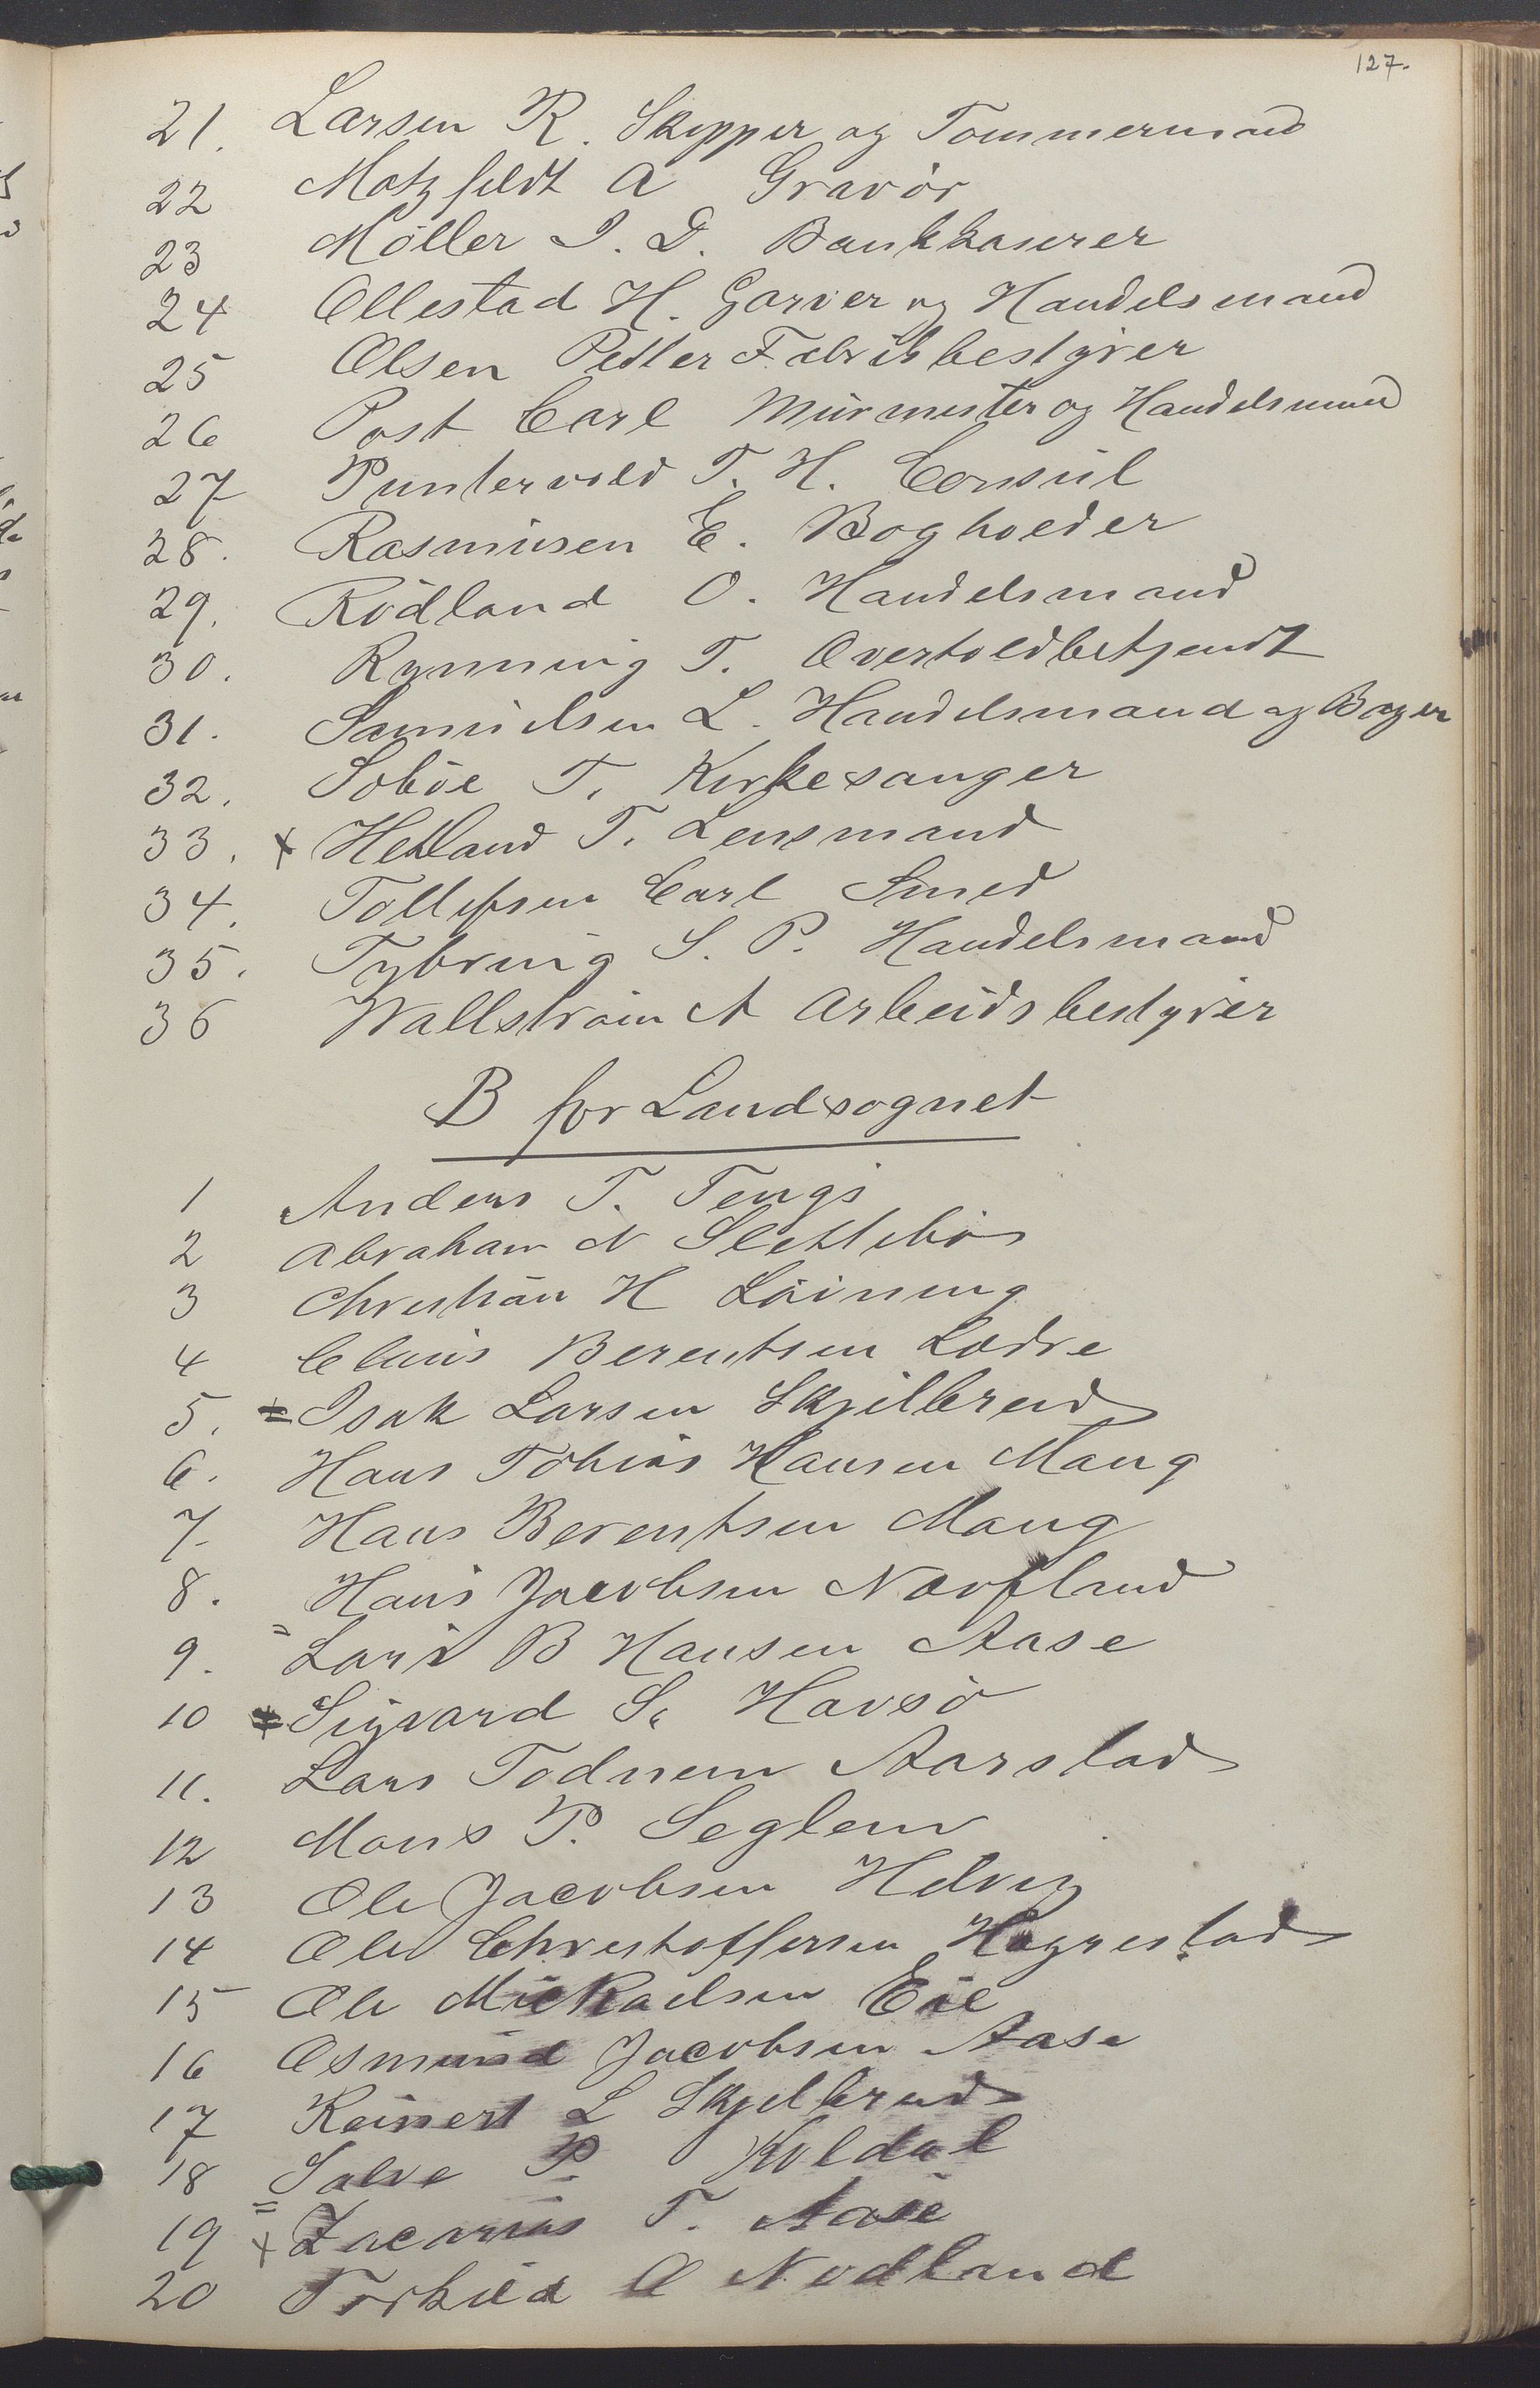 127.
21. Larsen R. Skipper og Tømmermand
22 Motzfeldt A Gravör
23 Möller J. D. Bankkaserer
24 Ollestad H. Garver og Handelsmand
25 Olsen Petter Fabrikbestyrer
26 Post Carl Mürmester og Handelsmand
27 Puntervold T. H. Consül
28. Rasmüsen E. Bogholder
29. Rödland O. Handelsmand
30. Rynning T. Overtoldbetjendt
31. Samüelsen L. Handelsmand og Bager
32. Soböe T. Kirkesanger
33. x Hetland T. Lensmand
34. Tollefsen Carl Smed
35. Tybring S. P. Handelsmand
36 Wallström A Arbeidsbestyrer
B for Landsognet
1 Anders T. Tengs
2 Abraham N Slettebö
3 Christian H Löining
4 Claüs Berentsen Lædre
5. = Isak Larsen Skjelbred
6. Hans Tobias Hansen Maug
7. Hans Berentsen Maug
8. Hans Jacobsen Nævfland
9. = Lars B Hansen Aase
10 = Sigvard S. Havsö
11. Lars Todnem Aarstad
12 Mons P. Seglem
13 Ole Jacobsen Helvig
14 Ole Christoffersen Høgrestad
15 Ole Mickaelsen Eie
16 Osmünd Jacobsen Aase
17 Reinert L Skjelbred
18 Salve P. Koldal
19 = x Zacarias T. Aase
20 Torkild O Nodland